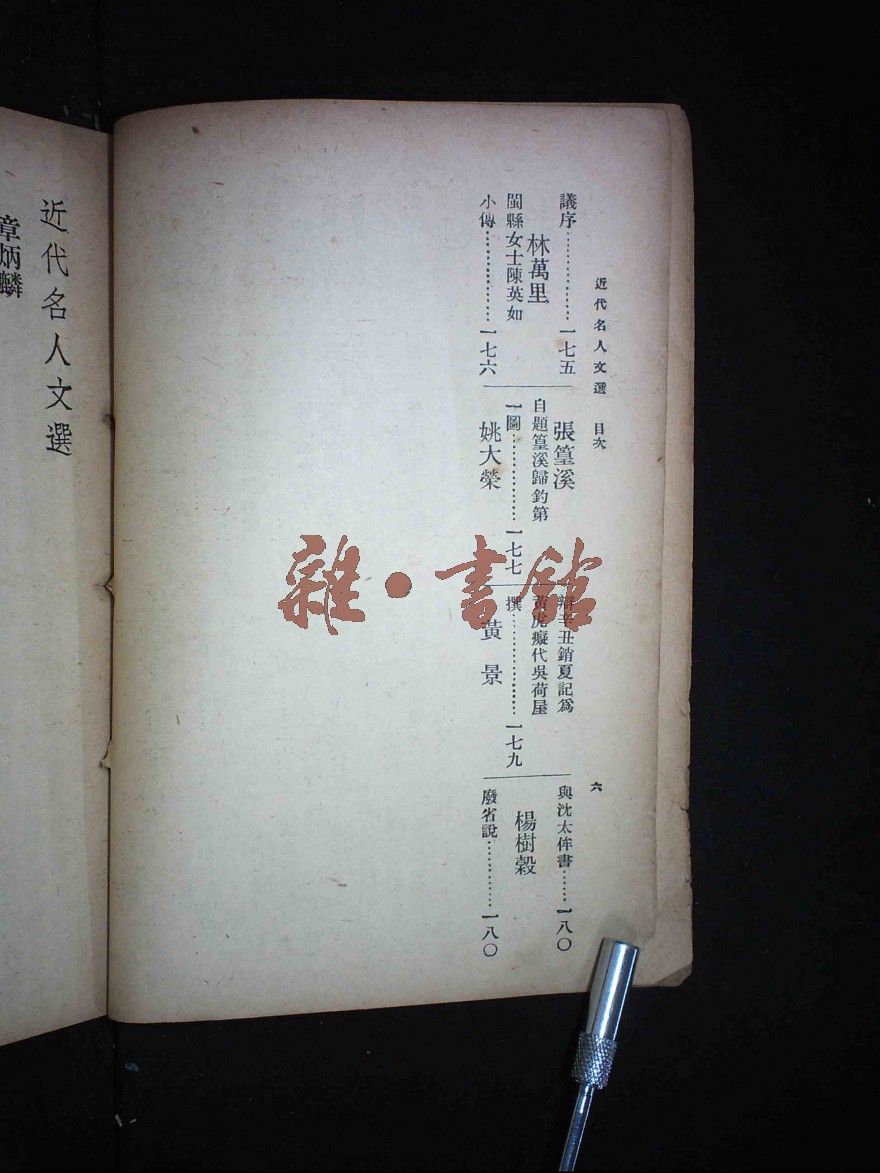 近代名人文選 目次
六
議序………………一七五
林萬里
閩縣女士陳英如
小傳………………一七六
張篁溪
自題篁溪歸釣第
一圖………………一七七
姚大榮
辯辛丑銷夏記爲
黃虎癡代吳荷屋
撰………………一七九
黃景
與沈太侔書……一八〇
楊樹穀
廢省說…………一八〇
近代名人文選
章炳麟
雜·書館